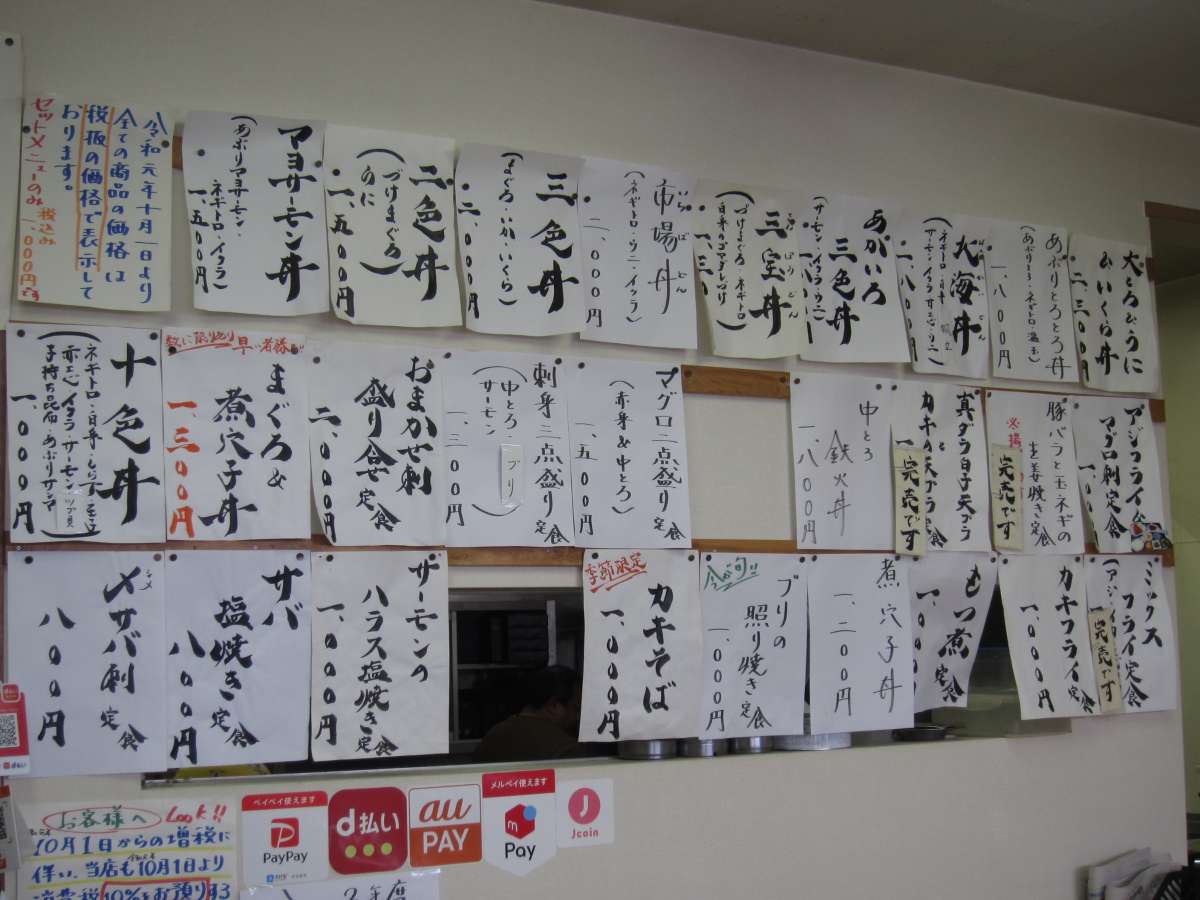 令和元年十月一日より
全ての商品の価格は
税抜の価格で表示して
おります。
セットメニューのみ 税込み
一、000円
マヨサーモン丼
(あぶりマヨサーモン・
ネギトロ・イクラ)
一、五00円
二色丼
(づけまぐろ・
うに)
一、五00円
三色丼
(まぐろ・いか・いくら)
二、000円
市場丼
いちばどん
(ネギトロ・ウニ・イクラ)
二、000円
三宝丼
(づけまぐろ・ネギトロ・
一、三00
あかいろ
三色丼
(サーモン・イクラ・ウニ)
大海丼
二、八00円
あぶりとろとろ丼
(あぶりトロ・ネギトロ・温玉)
一、八00円
大とろどうに
丼
二、三00円
十色丼
(ネギトロ・白身・
赤エビ・イクラ・サーモン・ツブ貝
子持ち昆布・あぶりサンマ)
一、000円
数に限り有り 早い者勝ち
まぐろ&
煮穴子丼
一、三00円
おまかせ刺
盛り合せ定食
二、000円
刺身三点盛り定食
(中とろ・ブリ
サーモン)
一、三00円
マグロ二点盛り定食
(赤身&中とろ)
一、五00円
中とろ
鉄火丼
一、八00円
真ダラ白子天プラ
と
カキの天プラ定食
完売です
豚バラと玉ネギの
生姜焼き定食
完売です
アジフライ&
マグロ刺定食
一、000円
シメ
〆サバ刺定食
八00円
サバ
塩焼き定食
八00円
サーモンの
ハラス塩焼き定食
一、000円
季節限定
カキそば
一、000円
今が旬!!
ブリの
照り焼き定食
一、000円
煮穴子丼
一、二00円
もつ煮定食
カキフライ定食
一、000円
ミックス
フライ定食
完売です
d払い
お客様へ
Look!!
10月1日からの増税に
伴い、当店も10月1日より
消費税10%をお預りする
ペイペイ使えます
PayPay
d払い
au
PAY
メルペイ使えます
Pay
J
Jcoin
2年度